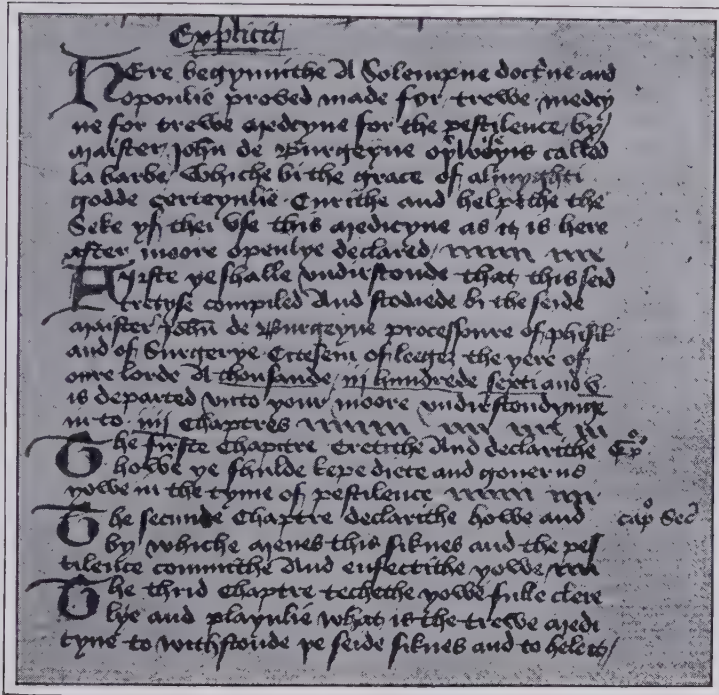 Explicit
HEre begynnithe A Solempne doctne and
oponlie proved made for trewe medcy
ne for trewe medcyne for the pestilence by
maister John de Burgeyne called
la barbe Whiche bi the grace of almyghti
godde certeynlie Curithe and helpithe the
Seke yf thei Vse this medicyne as it is here
after moore openlye declared
Firste ye shalle vndirstonde that this seid
tretyse compiled And stodiede bi the seide
maister John de Burgeyne processoure of phisik
and of Surgerye Citesein of leeges the yere of
oure lorde A thousande iij hundrede sexti and v
is departed vnto your moore vndirstondynge
in to iiij Chaptres
The firste Chapitre tretithe And declarithe
howe ye shulde kepe diete and governe
yowe in the tyme of pestilence
The secunde Chaptre declarithe howe and
cap Sec
by whiche menes this siknes and the pes
tilence commithe And enfectithe yowe
The thrid Chaptre techethe yowe fulle clere
lye and playnlie what is the trewe medi
cyne to withstonde þe seide siknes and to hele it